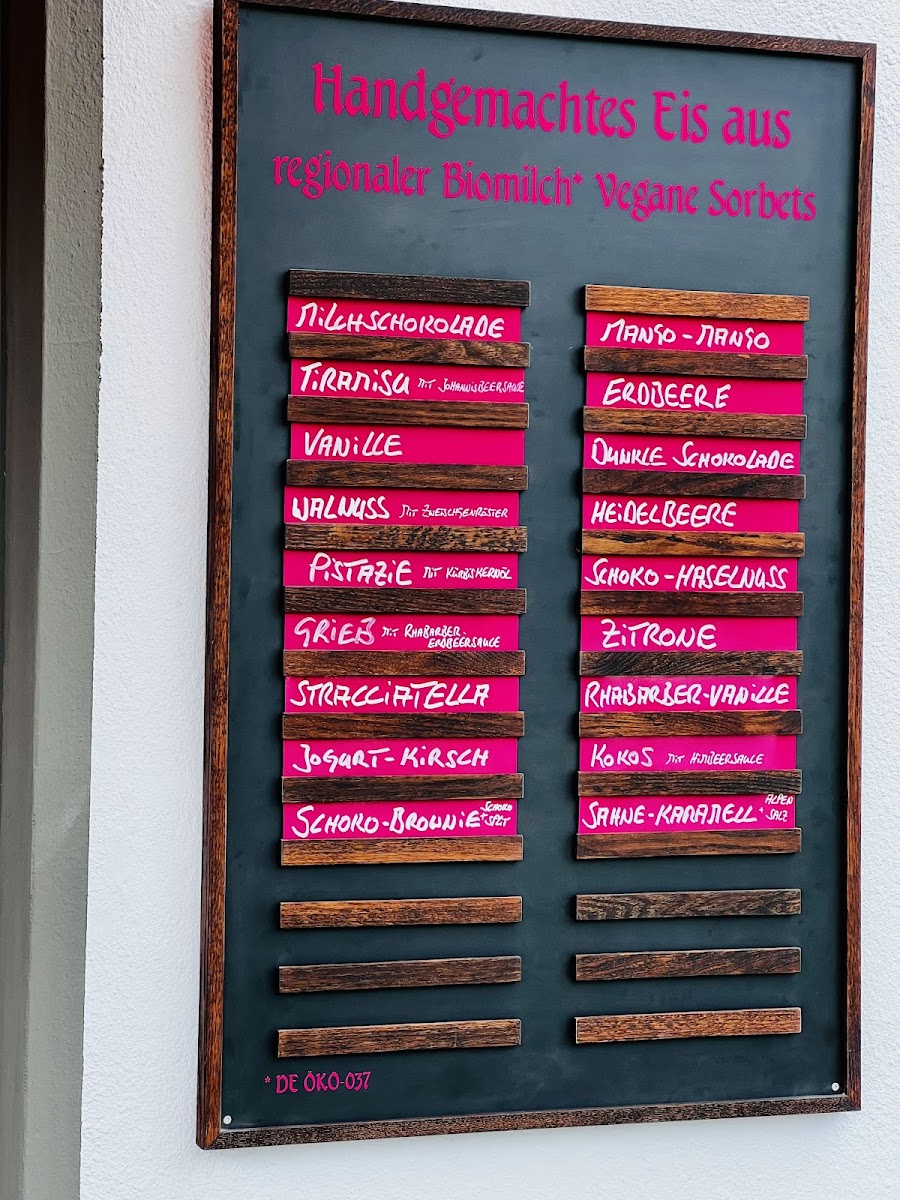 Handgemachtes Eis aus
regionaler Biomilch* Vegane Sorbets
MILCHSCHOKOLADE
TIRAMISU MIT JOHANNISBEERSAUCE
VANILLE
WALNUSS MIT ZWETSCHGENRÖSTER
PISTAZIE MIT KÜRBISKERNÖL
GRIEß MIT RHABARBER-
ERDBEERSAUCE
STRACCIATELLA
JOGURT-KIRSCH
SCHOKO-BROWNIE + SCHOKO
SPLIT
MANGO-MANGO
ERDBEERE
DUNKLE SCHOKOLADE
HEIDELBEERE
SCHOKO-HASELNUSS
ZITRONE
RHABARBER-VANILLE
KOKOS MIT HIMBEERSAUCE
SAHNE-KARAMELL + ALPEN
SALZ
* DE ÖKO-037